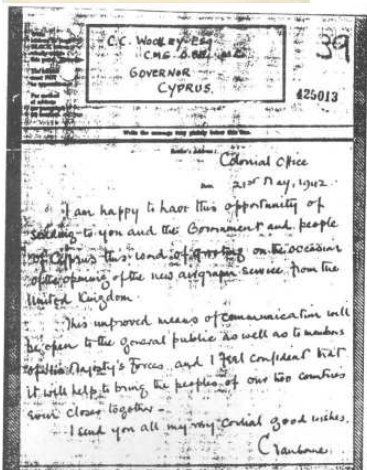 C.C. WOOLLEY ESQ
C.M.G. O.B.E. M.C.
GOVERNOR
CYPRUS.
39
425013
Write the message very plainly below this line.
Sender's Address:
Colonial Office
21st May, 1942.
I am happy to have this opportunity of
sending to you and the Government and people
of Cyprus this word of greeting on the occasion
of the opening of the new airgraph service from the
United Kingdom.
This improved means of communication will
be open to the general public as well as to members
of His Majesty's Forces and I feel confident that
it will help to bring the peoples of our two countries
even closer together -
I send you all my very cordial good wishes.
Cranborne.